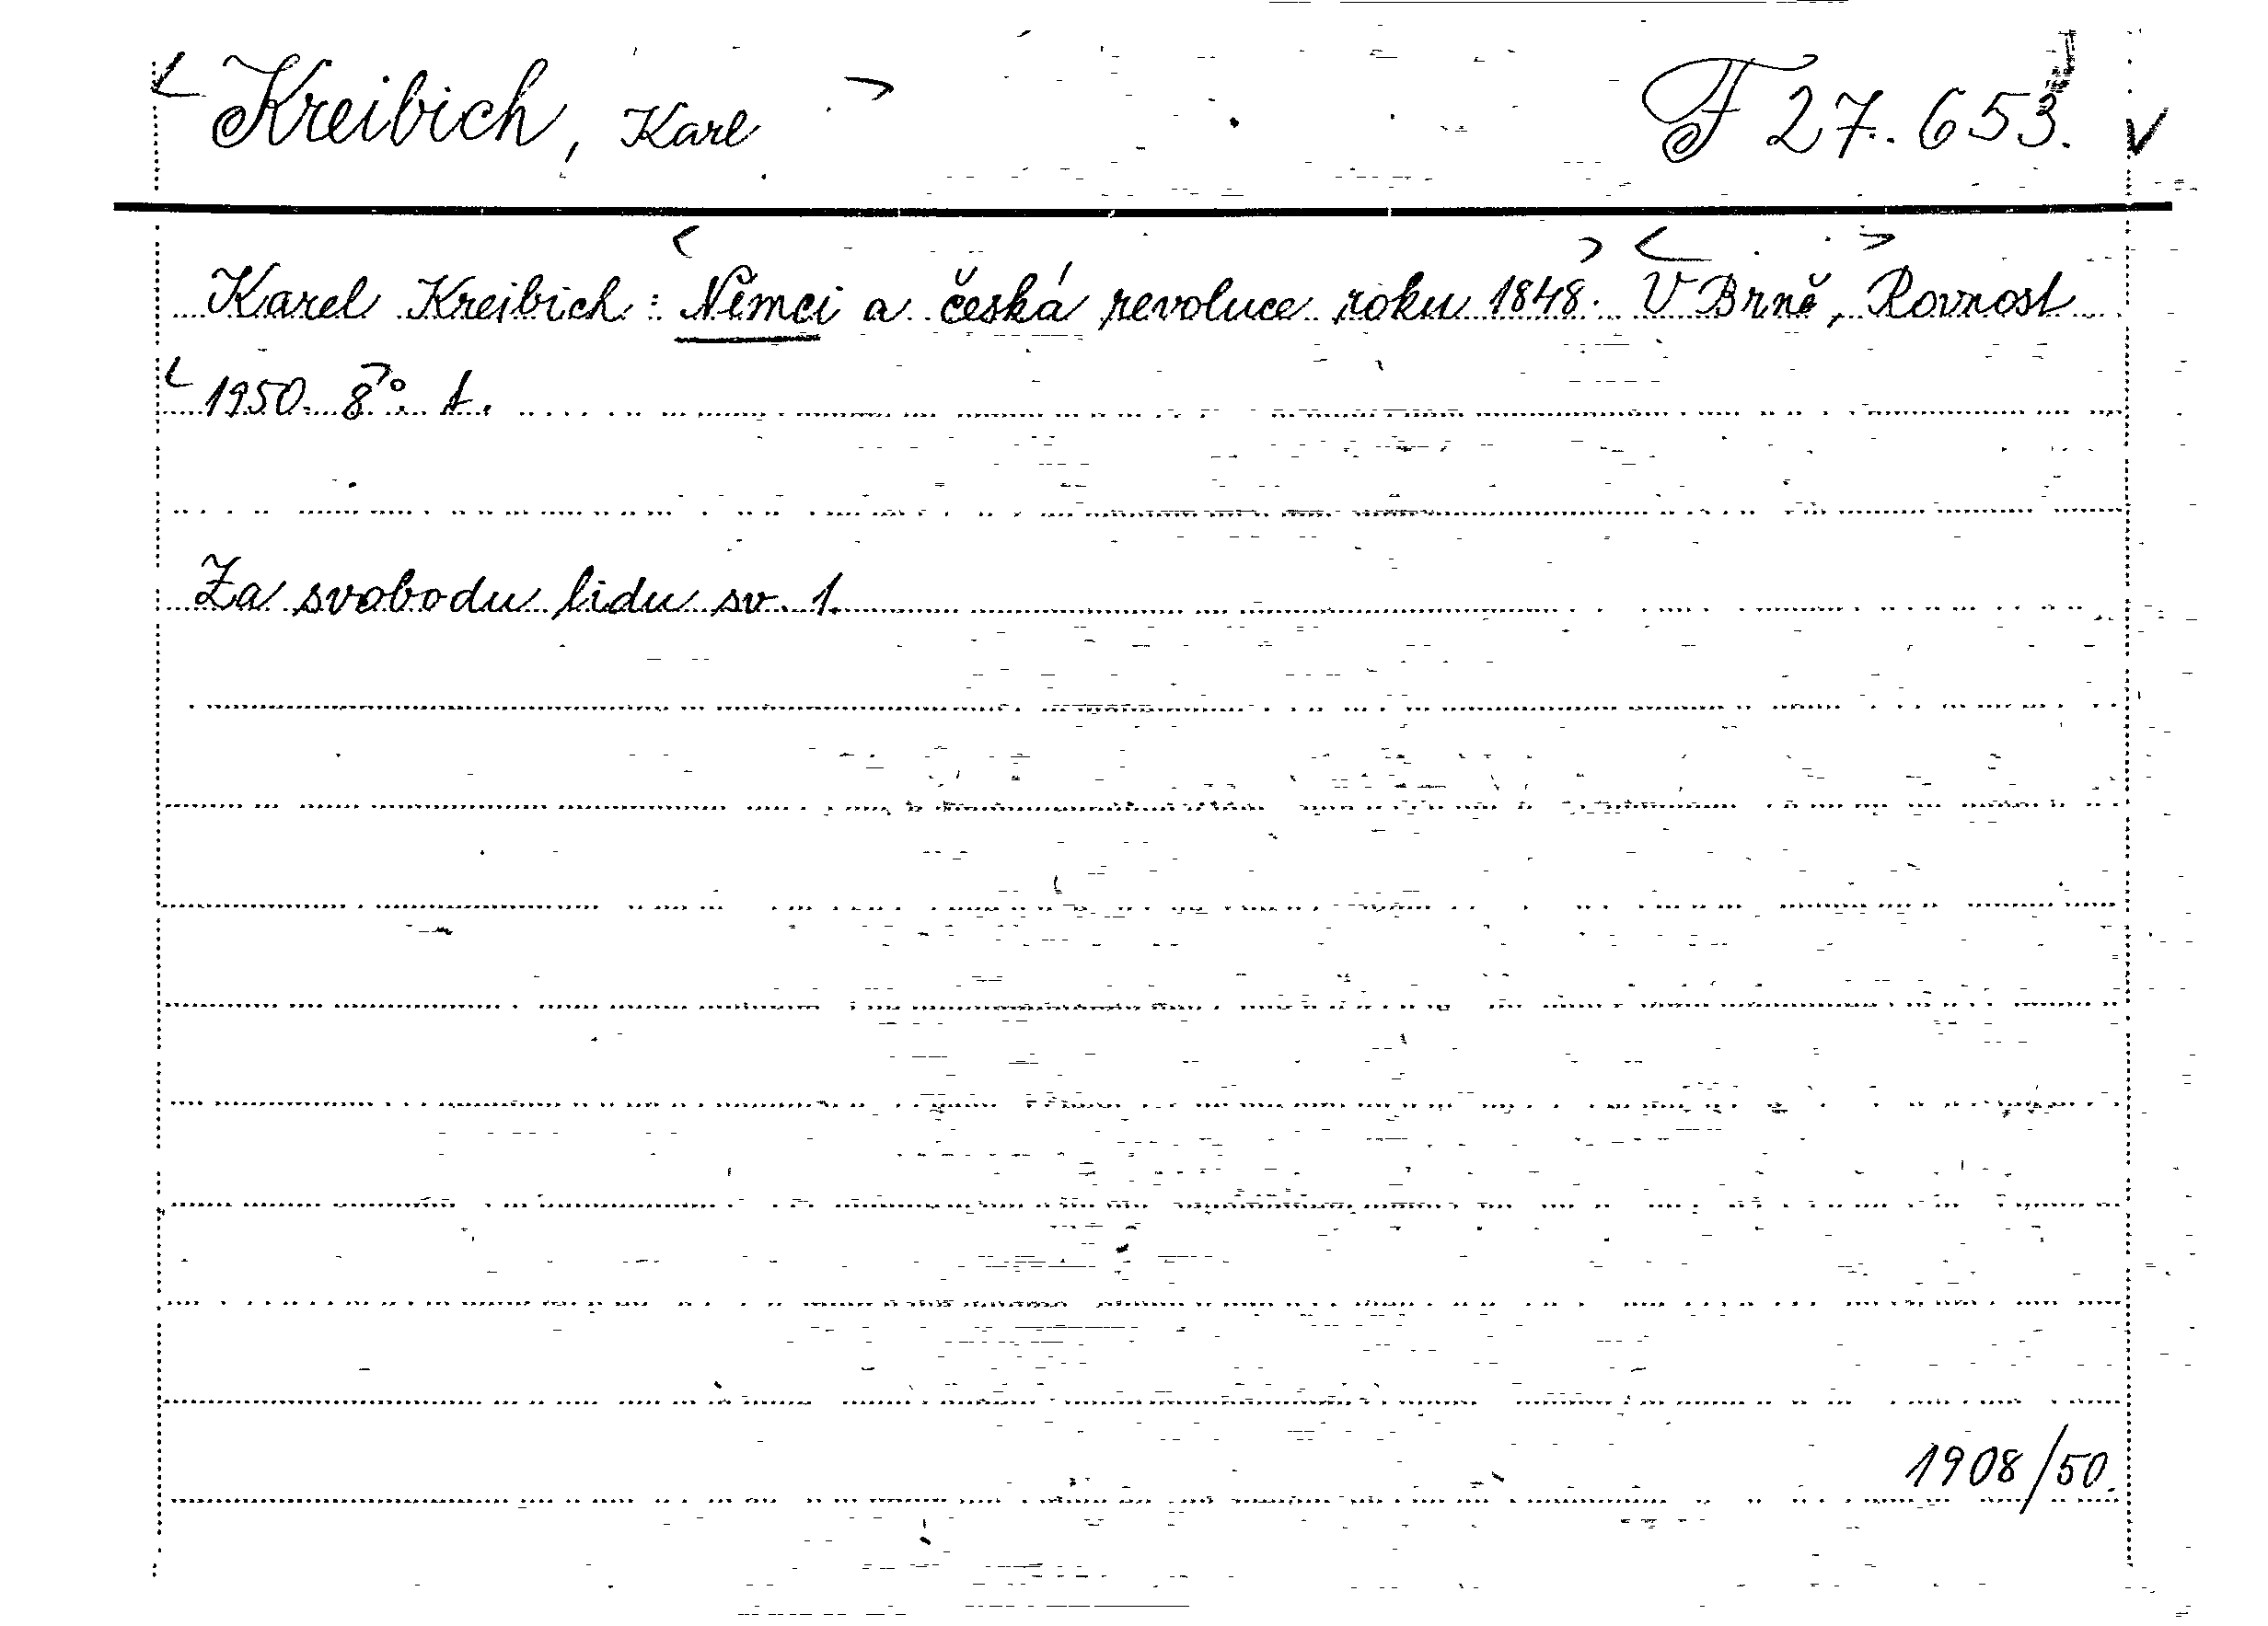 Kreibich, Karl F 27.653.
Karel Kreibich: Němci a česká revoluce roku 1848. V Brně, Rovnost
1950. 8°. t.
Za svobodu lidu sv. 1.
1908/50.